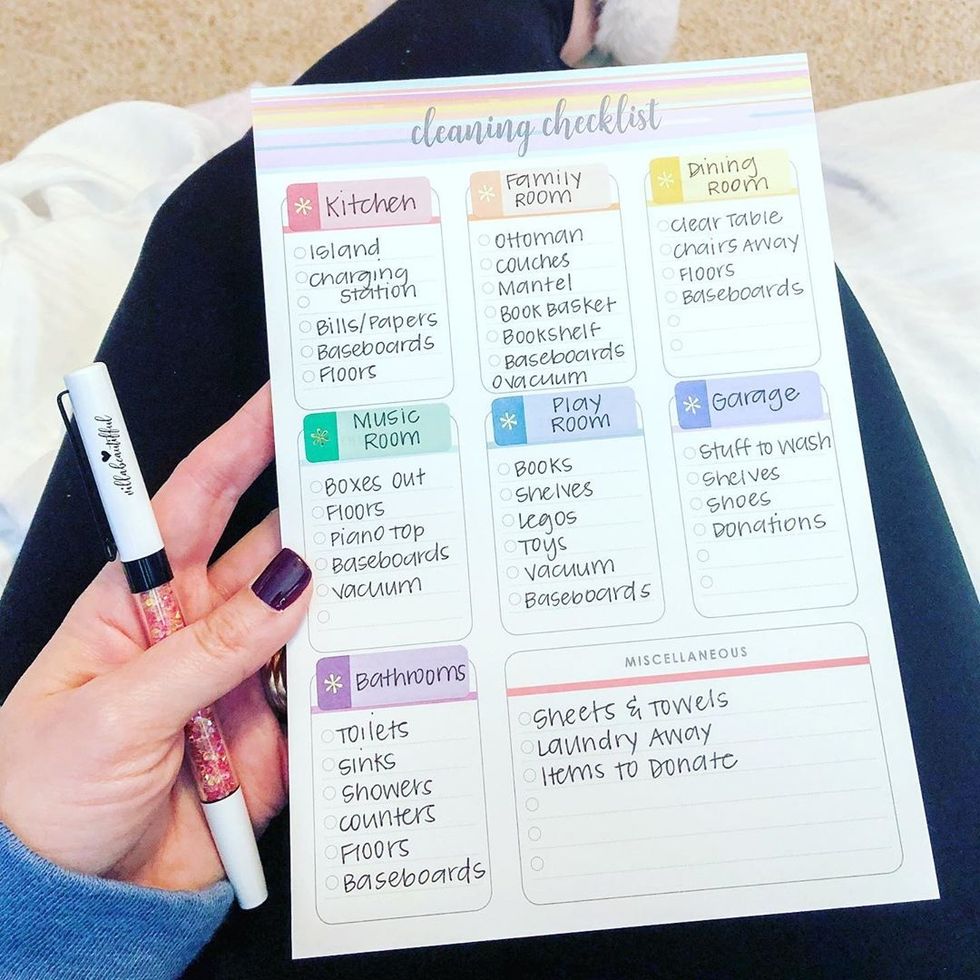 cleaning checklist
Kitchen
Island
Charging
Station
Bills/Papers
Baseboards
Floors
Family
Room
Ottoman
Couches
Mantel
Book Basket
Bookshelf
Baseboards
Vacuum
Dining
Room
Clear Table
Chairs Away
Floors
Baseboards
Music
Room
Boxes Out
Floors
Piano Top
Baseboards
Vacuum
Play
Room
Books
Shelves
Legos
Toys
Vacuum
Baseboards
Garage
Stuff to Wash
Shelves
Shoes
Donations
Bathrooms
Toilets
Sinks
Showers
Counters
Floors
Baseboards
MISCELLANEOUS
Sheets & Towels
Laundry Away
Items to Donate
villabeautifful